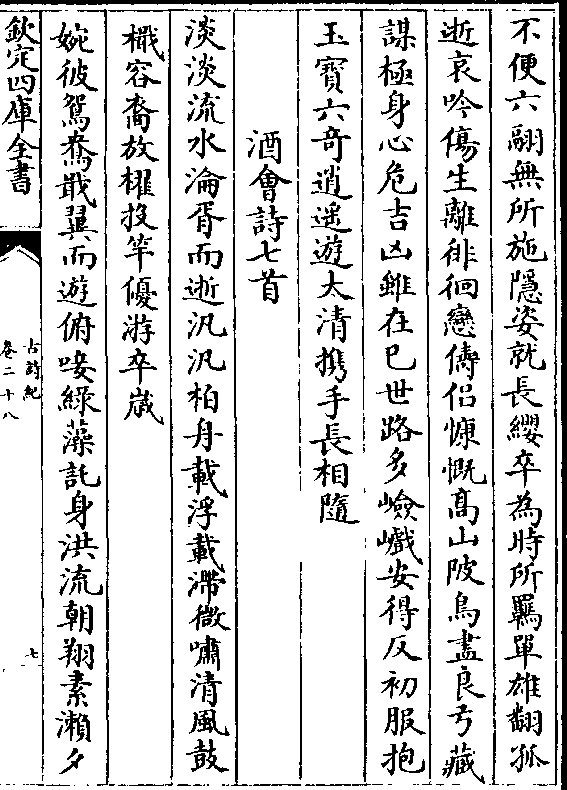 不便六翮無所施隱姿就長纓卒為時所羈單雄翻孤
逝哀吟傷生離徘徊戀儔侣慷慨髙山陂鳥盡良弓藏
謀極身心危吉凶雖在已世路多嶮巇安得反初服抱
玉寶六竒逍遥遊太清携手長相隨
酒會詩七首
淡淡流水淪胥而逝汎汎柏舟載浮載滯微嘯清風鼓
檝容裔放櫂投竿優游卒嵗
婉彼鴛鴦戢翼而遊俯唼緑藻託身洪流朝翔素瀨夕
欽定四庫全書
古詩紀
卷二十八
七